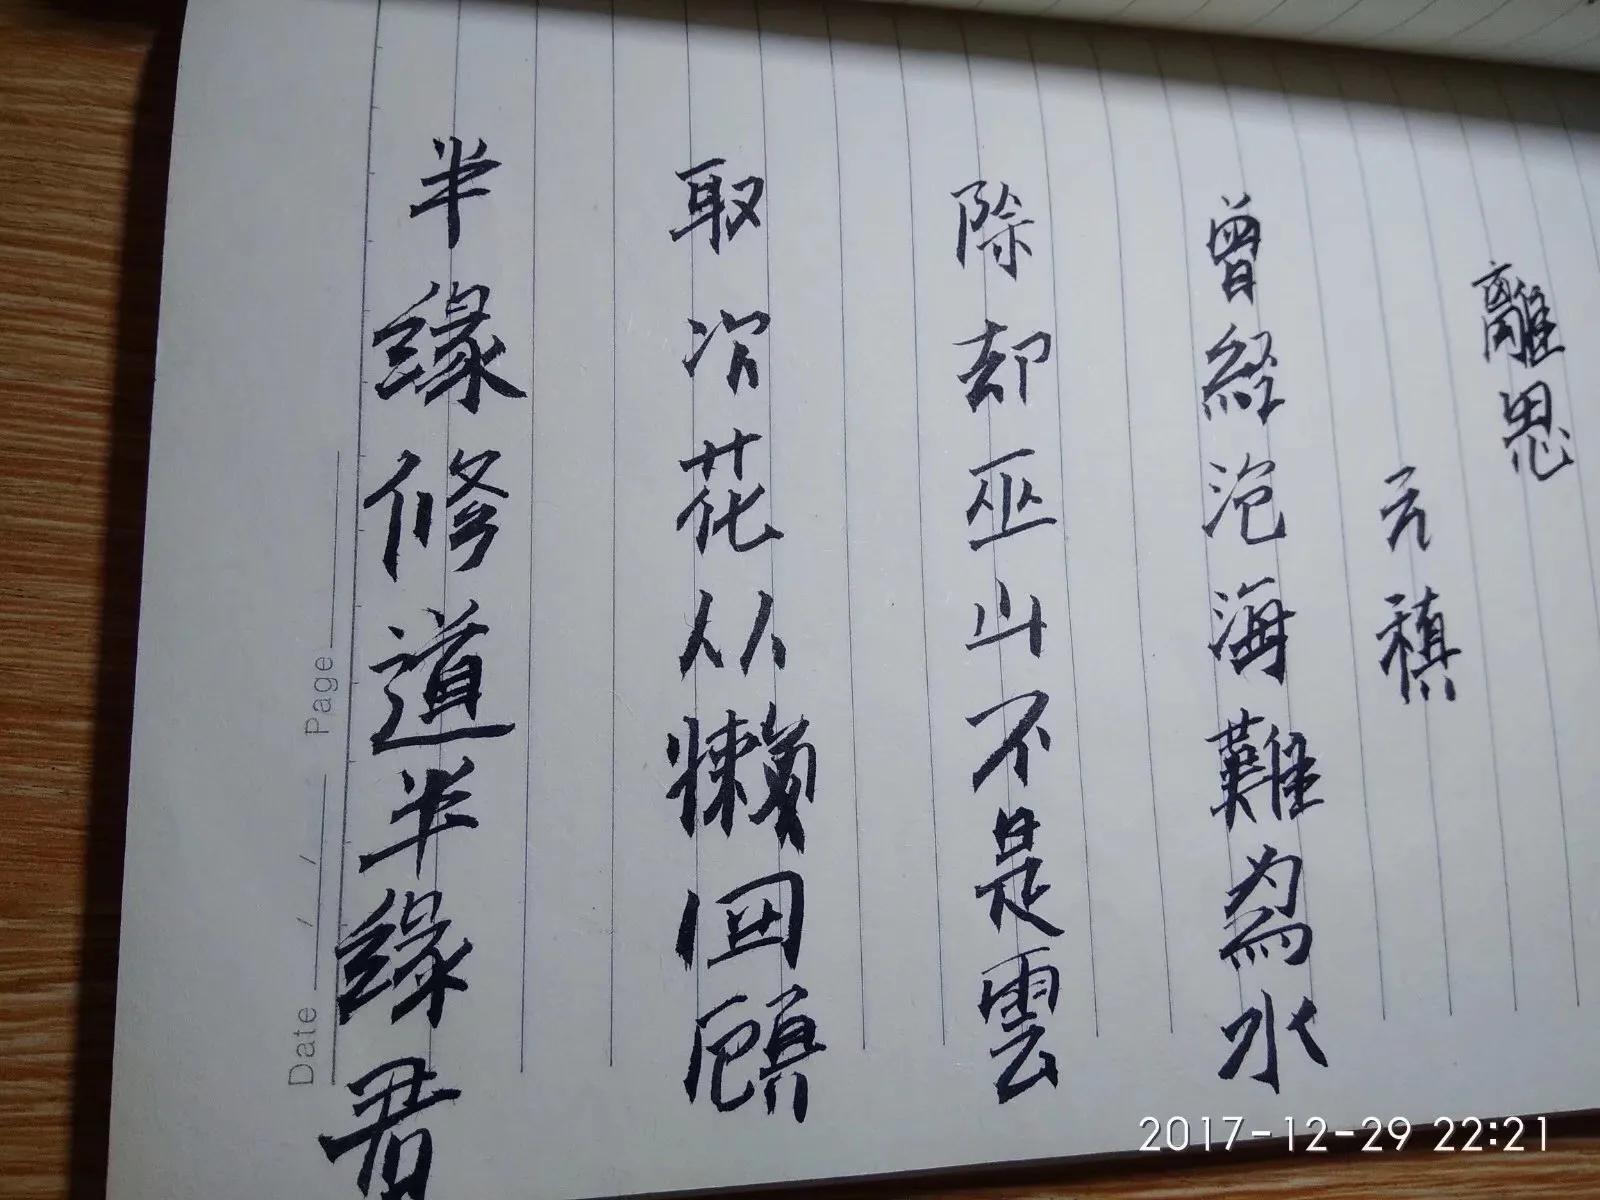 離思
元稹
曾経沧海難為水
除却巫山不是雲
取次花从懒回顧
半緣修道半緣君
Page
Date / /
2017-12-29 22:21